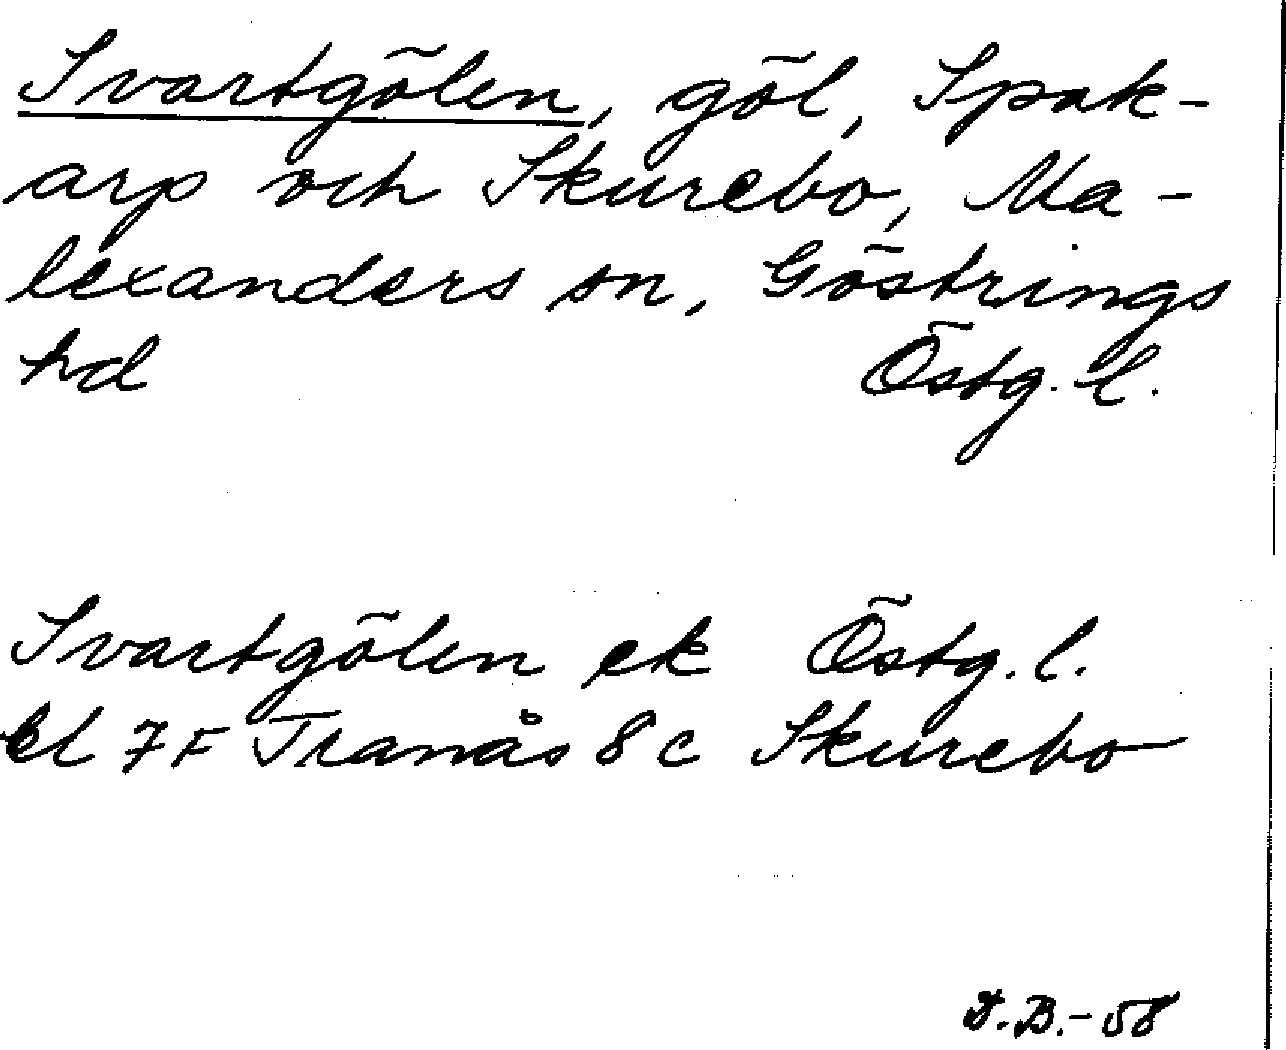 Svartgölen, göl, Spak-
arp och Skurebo, Ma-
lexanders sn, Göstrings
hd Östg. l.
Svartgölen ek Östg. l.
bl 7F Tranås 8c Skurebo
B.-58